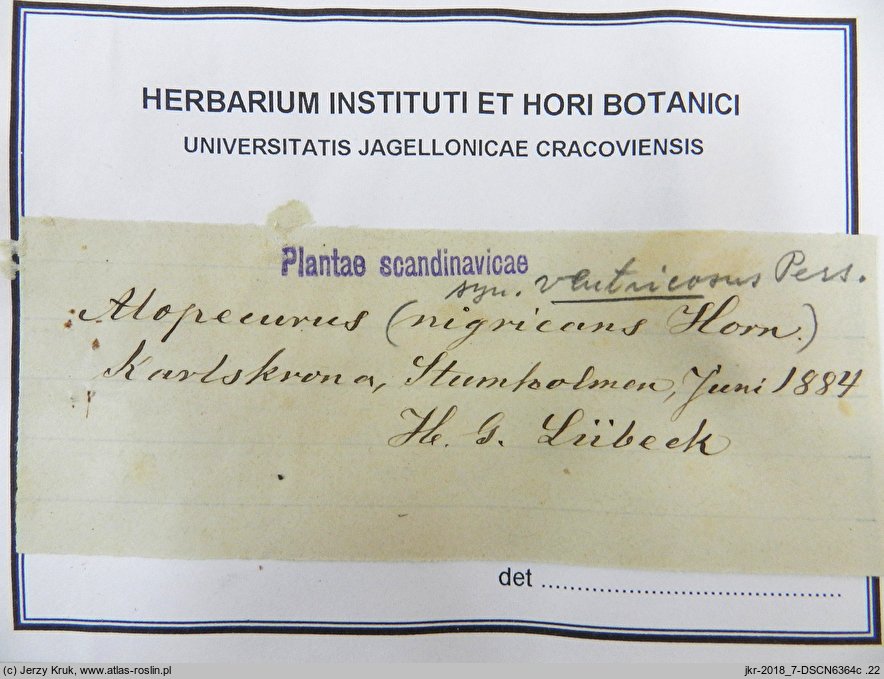 HERBARIUM INSTITUTI ET HORI BOTANICI
UNIVERSITATIS JAGELLONICAE CRACOVIENSIS
Plantae scandinavicae
syn. ventricosus Pers.
Alopecurus (nigricans Horn.)
Karlskrona, Stumholmen, Juni 1884
H. G. Lübeck
det ................................................
(c) Jerzy Kruk, www.atlas-roslin.pl
jkr-2018_7-DSCN6364c .22